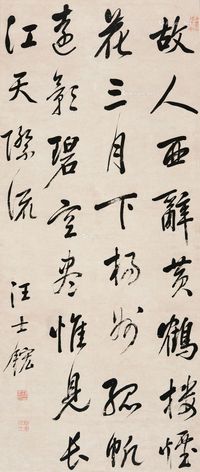 故人西辭黄鶴樓煙
花三月下楊州孤帆
遠影碧空盡惟見長
江天際流
汪士鋐